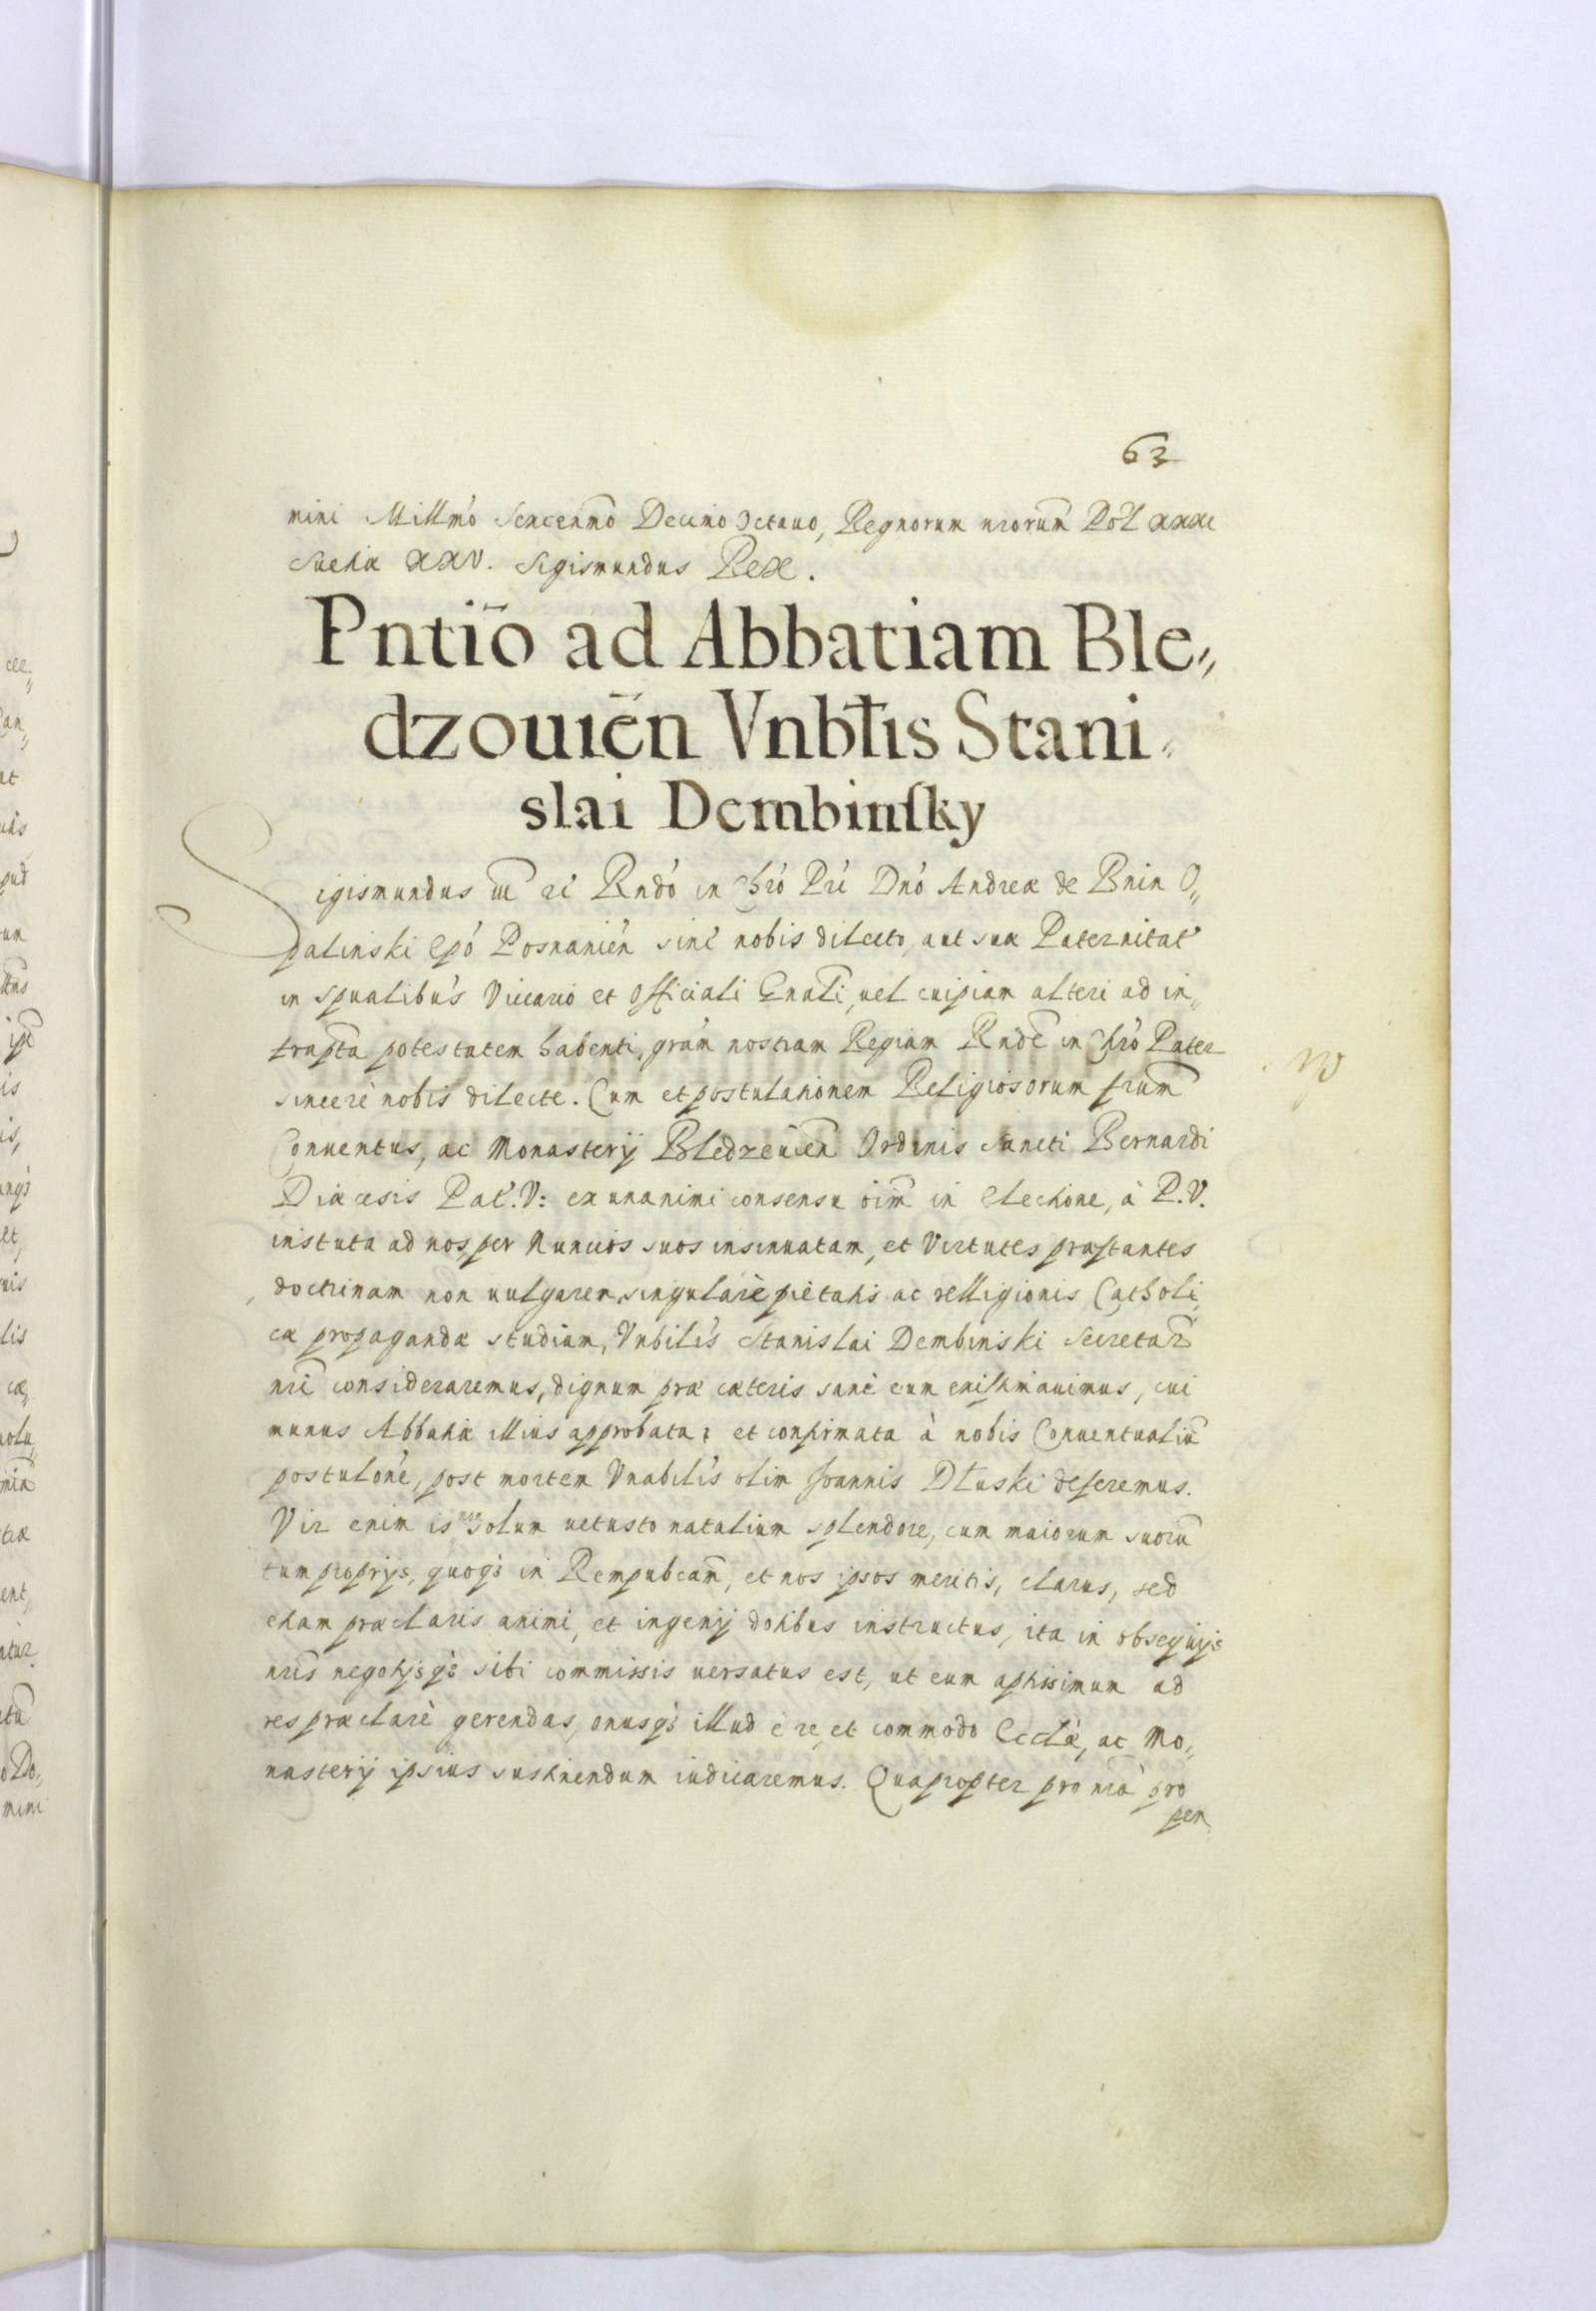 63
mini Millmo Sexcenmo Decimo Octauo, Regnorum nrorum Pol xxxi
Sueciæ XXV. Sigismundus Rex.
Pntio ad Abbatiam Ble„
dzouien Vnblis Stani„
slai Dembinsky
Sigismundus III etc Rndo in Chro Pri Dno Andreæ de Bnin O„
palinski Epo Posnanien sinc nobis dilecto, aut suæ Paternitat
in spualibus Vicario et Officiali Gnali, uel cuipiam alteri ad in„
frapta potestatem habenti, gram nostram Regiam Rnde in Chro Pater
sincere nobis dilecte. Cum et postulationem Religiosorum frum
Conuentus, ac Monasterij Bledzeuien Ordinis Sancti Bernardi
Diæcesis Pat. V: ex unanimi consensu oim in electione, à P. V.
instuta ad nos per Nuncios suos insinuatam, et Virtutes præstantes
doctrinam non uulgarem, singulare pietatis ac relligionis Catholi„
cæ propagandæ studium, Vnbilis Stanislai Dembinski Secretar
nri consideraremus, dignum præ cæteris sane eum existimauimus, cui
munus Abbatiæ illius approbata; et confirmata à nobis Conuentualiu
postulone, post mortem Vnabilis olim Joannis Dłuski deferemus.
Vir enim is non solum uetusto natalium splendore, cum maiorum suoru
tum proprijs, quoqs in Rempubcam, et nos ipsos meritis, clarus, sed
etiam præclaris animi, et ingenij dotibus instructus, ita in obsequijs
nris negotijsqs sibi commissis uersatus est, ut eum aptissimum ad
res præclarè gerendas, onusqs illud è re, et commodo Ecclæ, ac Mo„
nasterij ipsius sustinendum iudicaremus. Quapropter pro nra pro
pen„